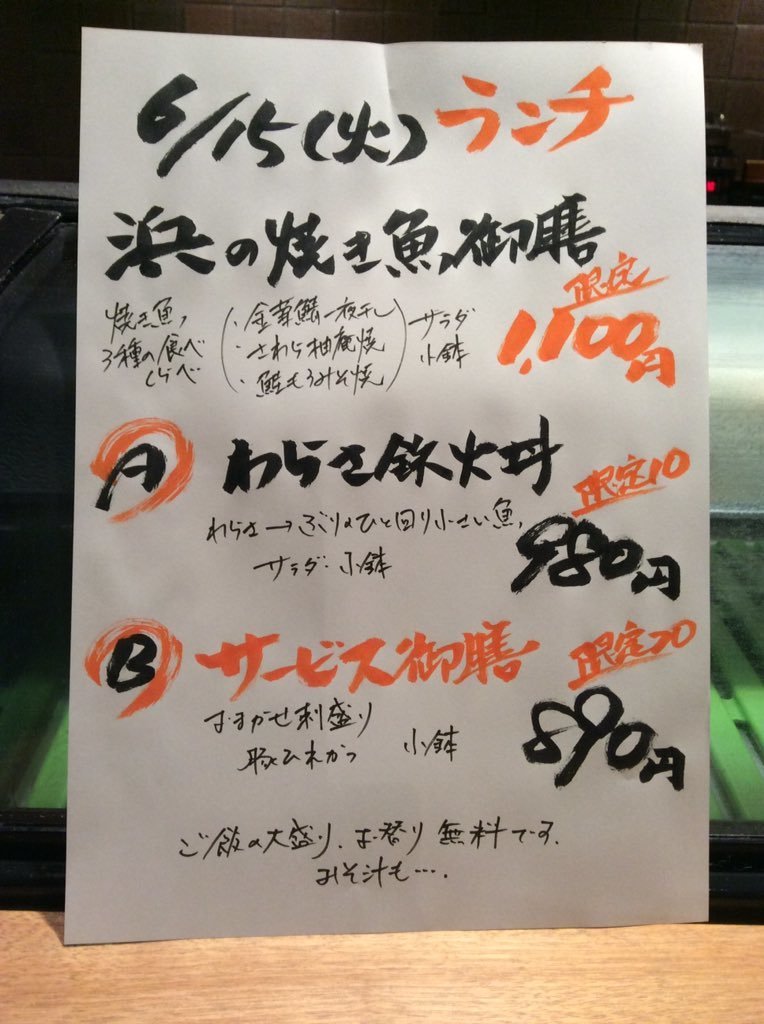 6/15(火)ランチ
浜の焼き魚御膳
限定
1,100円
焼き魚、
3種の食べ
くらべ
(・金華鯖一夜干し
・さわら柚庵焼
・鮭もろみそ焼)
サラダ
小鉢
A わらさ鉄火丼
限定10
980円
わらさ→ぶりのひと回り小さい魚、
サラダ・小鉢
B サービス御膳
限定20
890円
おまかせ刺盛り
豚ひれかつ 小鉢
ご飯の大盛り、お替り無料です、
みそ汁も….